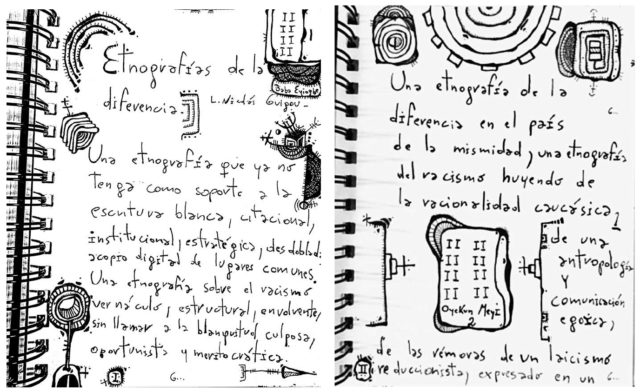 Etnografías de la
diferencia.
L. Nicolás Guigou_
II II
II II
II II
II II
Baba Eyiogbe
Una etnografía que ya no
tenga como soporte a la
escritura blanca, citacional,
institucional, estratégica, desdoblada
acopio digital de lugares comunes.
Una etnografía sobre el racismo
vernáculo, estructural, envolvente,
sin llamar a la blanquitud culposa,
oportunista y meritocrática.
I
G...
Una etnografía de la
G...
diferencia en el país
de la mismidad, una etnografía
del racismo huyendo de
la racionalidad caucásica,
II II
II II
II II
II II
Oyekun Meyi
2
de una
antropología
y
comunicación
egoica,
de las rémoras de un laicismo
II reduccionista, expresado en un G...